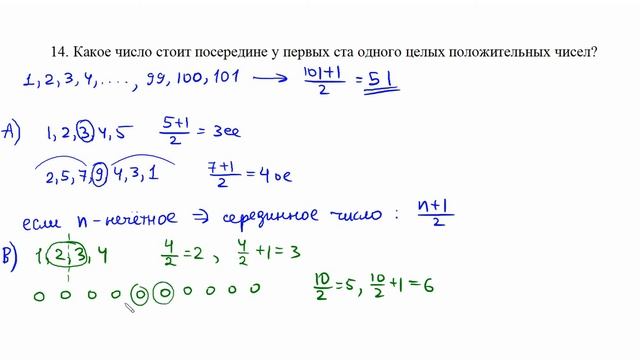 14. Какое число стоит посередине у первых ста одного целых положительных чисел?
1, 2, 3, 4, ...., 99, 100, 101 → (101+1)/2 = 51
А) 1, 2, 3, 4, 5 (5+1)/2 = 3ее
2, 5, 7, 9, 4, 3, 1 (7+1)/2 = 4ое
если n - нечётное ⇒ серединное число : (n+1)/2
В) 1, 2, 3, 4 4/2 = 2 , 4/2 + 1 = 3
10/2 = 5, 10/2 + 1 = 6